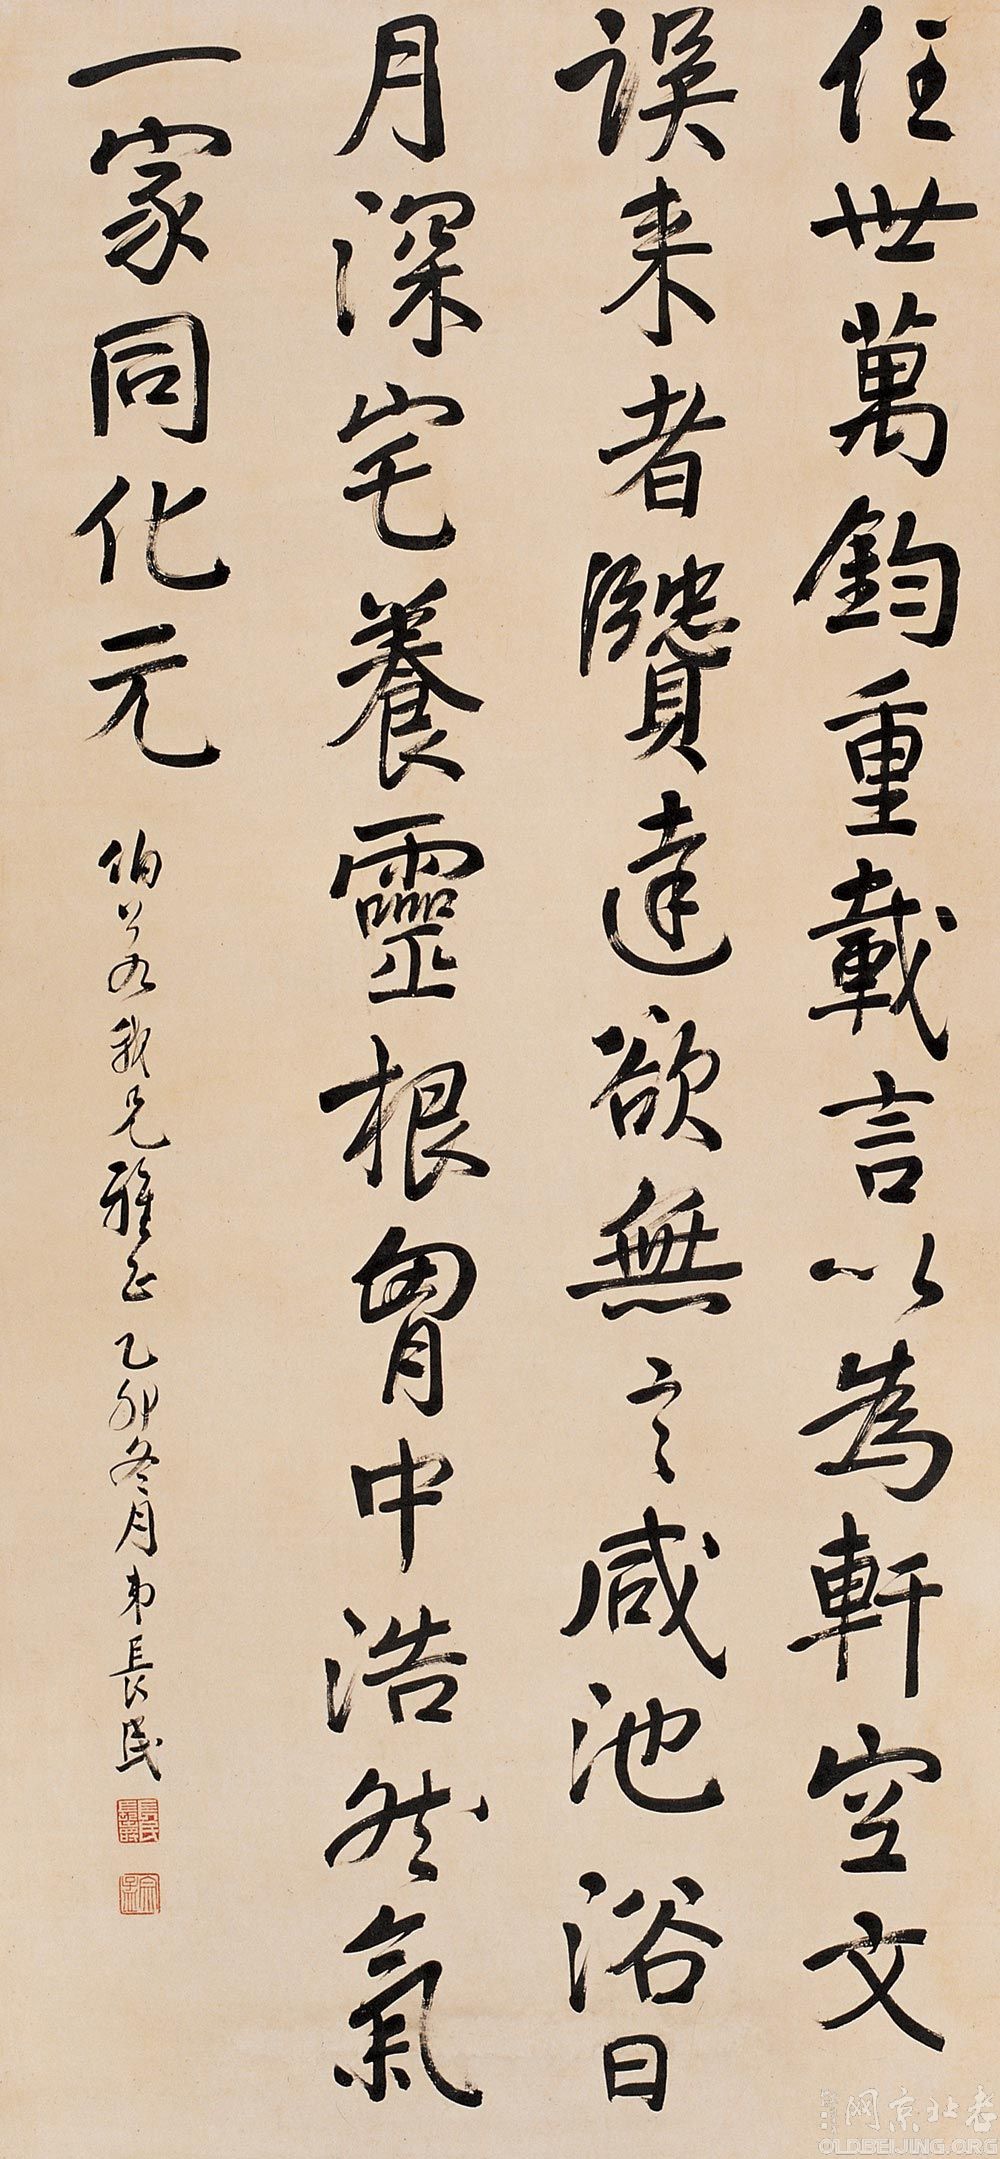 任世萬鈞重載言以為軒空文
誤来者達欲無言咸池浴日
月深宅養靈根胷中浩然氣
一家同化元
伯若我兄雅正乙卯冬月弟長民
宗孟
老北京网
OLDBEIJING.ORG